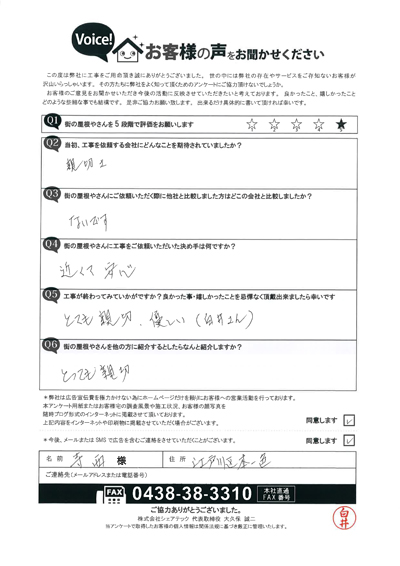 Voice!
お客様の声をお聞かせください
この度は弊社に工事をご用命頂き誠にありがとうございました。世の中には弊社の存在やサービスをご存知ないお客様が
沢山いらっしゃいます。その方たちに弊社をよく知って頂くためのアンケートにご協力頂けないでしょうか。
お客様のご意見をお聞かせいただき今後の活動に反映させていただきたいと考えております。良かったこと、嬉しかったこと
どのような些細な事でも結構です。是非ご協力お願い致します。出来るだけ具体的に書いて頂ければ幸いです。
Q1 街の屋根やさんを5段階で評価をお願いします ☆ ☆ ☆ ☆ ★
Q2 当初、工事を依頼する会社にどんなことを期待されていましたか?
親切さ
Q3 街の屋根やさんにご依頼いただく際に他社と比較しました方はどこの会社と比較しましたか?
ないです
Q4 街の屋根やさんに工事をご依頼いただいた決め手は何ですか?
近くて 安心
Q5 工事が終わってみていかがですか?良かった事・嬉しかったことを忌憚なく頂戴出来ましたら幸いです
とても親切、優しい(白井さん)
Q6 街の屋根やさんを他の方に紹介するとしたらなんと紹介しますか?
とっても親切
*弊社は広告宣伝費を極力かけない為にホームページだけを頼りにお客様への営業活動を行っております。
本アンケート用紙またはお客様宅の調査風景や施工状況、お客様の顔写真を
随時ブログ形式のインターネットに掲載させて頂いております。
上記内容をインターネットや印刷物に掲載させていただく場合がございます。 同意します ✓
*今後、メールまたはSMSで広告を含むご連絡をさせていただくことがございます。 同意します ✓
名前 様 住所 江戸川区本一色
ご連絡先(メールアドレスまたは電話番号)
FAX 0438-38-3310 本社直通 FAX番号
ご協力ありがとうございました。
株式会社シェアテック 代表取締役 大久保 誠二
当アンケートで取得したお客様の個人情報は関係法規に基づき厳正に管理いたします。
白井